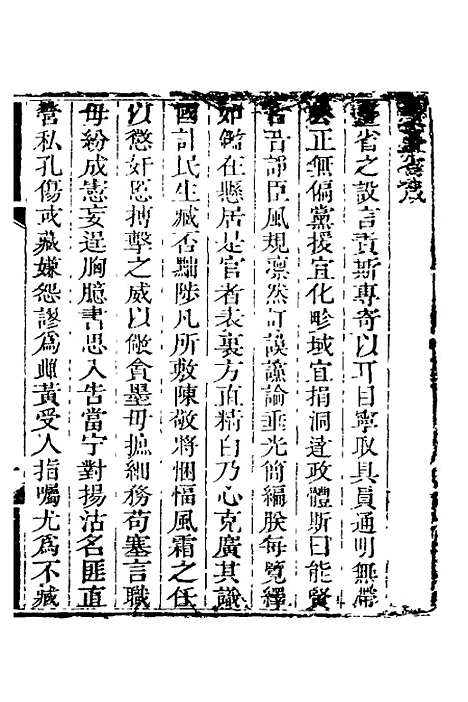 臺省箴
臺省之設言責斯專寄以耳目寧取具員通明無滯
公正無偏黨援宜化畛域宜捐洞達政體斯曰能賢
古昔諍臣風規凜然訏謨讜論垂光簡編朕每覽繹
如鑑在懸居是官者表裏方直精白乃心克廣其識
國計民生臧否黜陟凡所敷陳敬將悃愊風霜之任
以懲奸慝搏擊之威以儆貪墨毋摭細務苟塞言職
毋紛成憲妄逞胸臆書思入告當宁對揚沽名匪直
營私孔傷或藏嫌怨謬為雌黃受人指囑尤為不臧